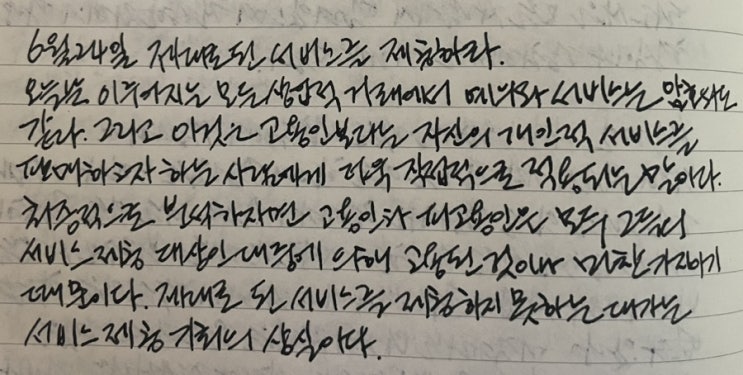 6월24일 제대로 된 서비스를 제공하라.
오늘날 이루어지는 모든 상업적 거래에서 예의와 서비스는 암호와도
같다. 그리고 이것은 고용인보다는 자신의 개인적 서비스를
판매하고자 하는 사람에게 더욱 직접적으로 적용되는 말이다.
최종적으로 분석하자면 고용인과 피고용인은 모두 그들의
서비스 제공 대상인 대중에 의해 고용된 것이나 마찬가지이기
때문이다. 제대로 된 서비스를 제공하지 못하는 대가는
서비스 제공 기회의 상실이다.